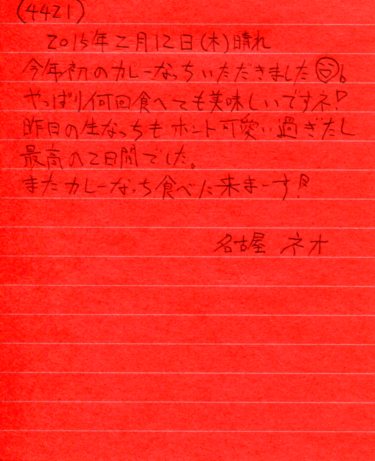 (4421)
2015年二月12日(木)晴れ
今年初のカレーなっちいただきました!
やっぱり何回食べても美味しいですネ!
昨日の生なっちもホント可愛い過ぎたし
最高の2日間でした。
またカレーなっち食べに来まーす!
名古屋 ネオ